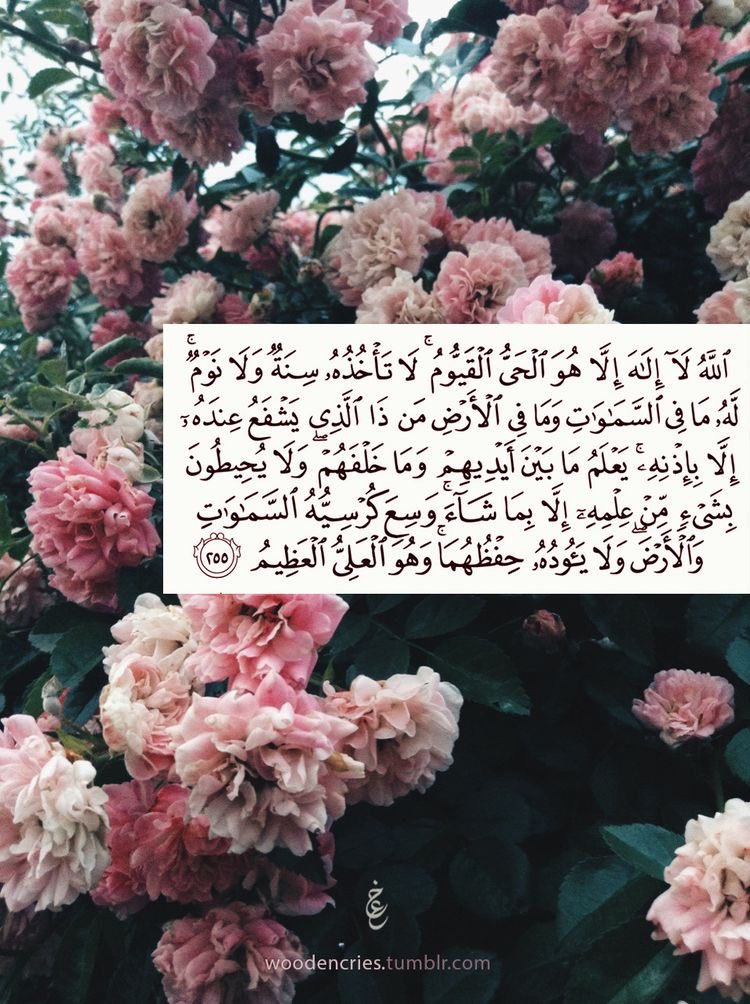 ٱللَّهُ لَآ إِلَـٰهَ إِلَّا هُوَ ٱلْحَىُّ ٱلْقَيُّومُ ۚ لَا تَأْخُذُهُۥ سِنَةٌ وَلَا نَوْمٌ ۚ
لَّهُۥ مَا فِى ٱلسَّمَـٰوَٰتِ وَمَا فِى ٱلْأَرْضِ مَن ذَا ٱلَّذِى يَشْفَعُ عِندَهُۥٓ
إِلَّا بِإِذْنِهِۦ ۚ يَعْلَمُ مَا بَيْنَ أَيْدِيهِمْ وَمَا خَلْفَهُمْ ۖ وَلَا يُحِيطُونَ
بِشَىْءٍ مِّنْ عِلْمِهِۦٓ إِلَّا بِمَا شَآءَ ۚ وَسِعَ كُرْسِيُّهُ ٱلسَّمَـٰوَٰتِ
وَٱلْأَرْضَ ۖ وَلَا يَـُٔودُهُۥ حِفْظُهُمَا ۚ وَهُوَ ٱلْعَلِىُّ ٱلْعَظِيمُ ٢٥٥
woodencries.tumblr.com